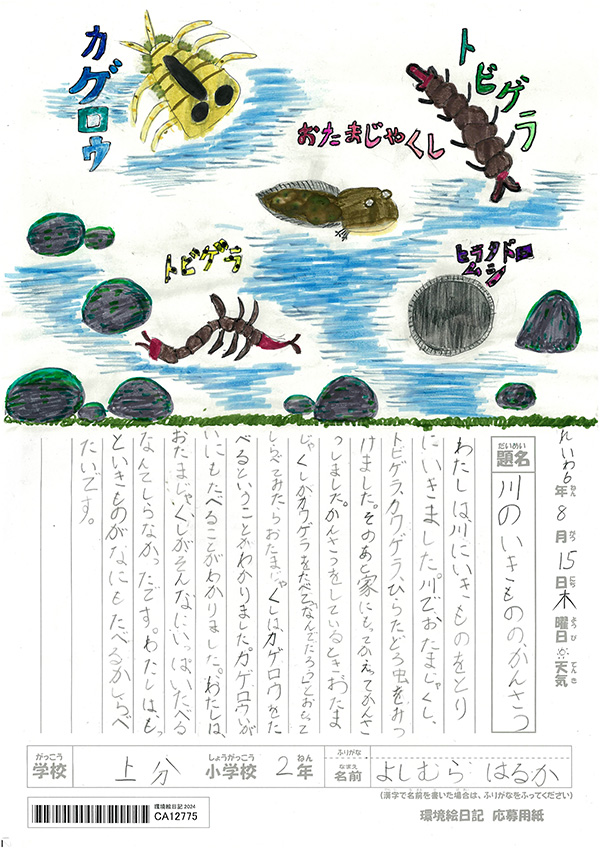 カゲロウ
トビゲラ
おたまじゃくし
トビゲラ
ヒラタドロ
ムシ
れいわ6年8月15日木曜日天気
ねん
がつ
にち
ようび
てんき
だいめい
題名
川のいきもののかんさつ
わたしは川にいきものをとり
にいきました。川でおたまじゃくし、
トビゲラ、カワゲラ、ひらたどろ虫をみつ
けました。そのあと家にもってかえってかんさ
つしました。かんさつをしているとき、おたま
じゃくしがカワゲラをたべて、なんでだろうとおもって
しらべてみたらおたまじゃくしはカゲロウをた
べるということがわかりました。カゲロウいが
いにもたべることがわかりました。わたしは、
おたまじゃくしがそんなにいっぱいたべる
なんてしらなかったです。わたしは、もっ
といきものがなにもたべるかしらべ
たいです。
がっこう
学校
上分
しょうがっこう
小学校
2年
ねん
ふりがな
なまえ
名前
よしむら はるか
(漢字で名前を書いた場合は、ふりがなをふってください)
環境絵日記2024
CA12775
環境絵日記 応募用紙